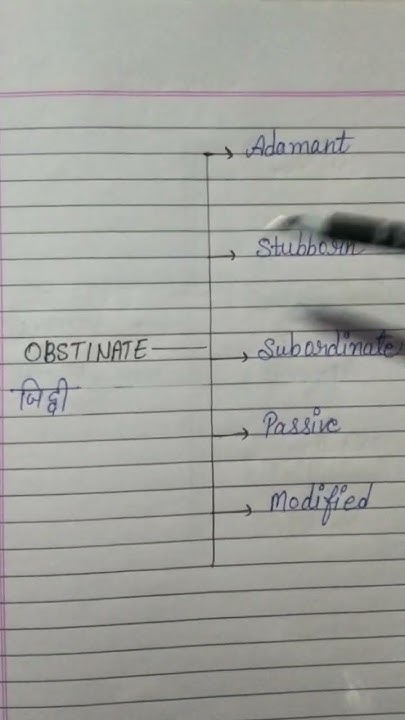 Adamant
Stubborn
OBSTINATE
Subordinate
जिद्दी
Passive
Modified